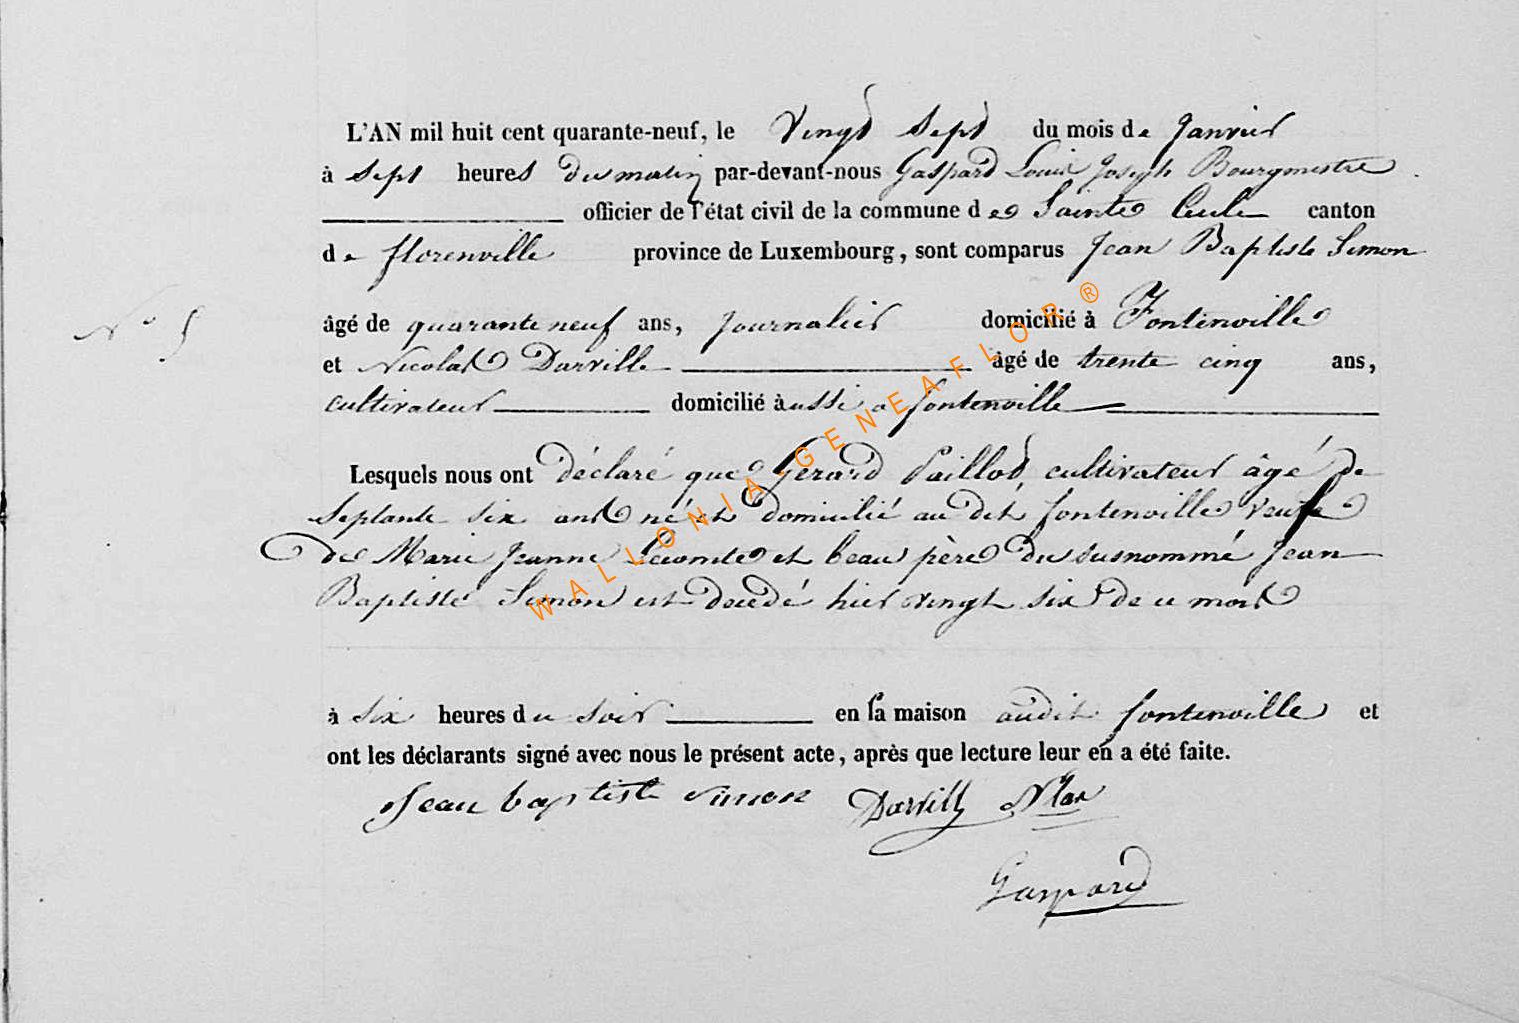 L'AN mil huit cent quarante-neuf, le Vingt Sept du mois de Janvier
à Sept heures du matin par-devant-nous Gaspard Louis Joseph Bourgmestre
officier de l'état civil de la commune de Sainte Cecile canton
de florenville province de Luxembourg, sont comparus Jean Baptiste Simon
N° 5
âgé de quarante neuf ans, Journalier domicilié à Fontenoille
et Nicolas Darville âgé de trente cinq ans,
cultivateur domicilié àussi a fontenoille
Lesquels nous ont déclaré que Gerard Paillot, cultivateur âgé de
Septante six ans né et domicilié au dit fontenoille veuf
de Marie Jeanne Lecomte et beau père du susnommé Jean
Baptiste Simon est decedé hier vingt six de ce mois
à six heures du soir en sa maison audit fontenoille et
ont les déclarants signé avec nous le présent acte, après que lecture leur en a été faite.
Jean baptiste simon Darvill Nlas
Gaspard
WALLONIA-GENEAFLOR®